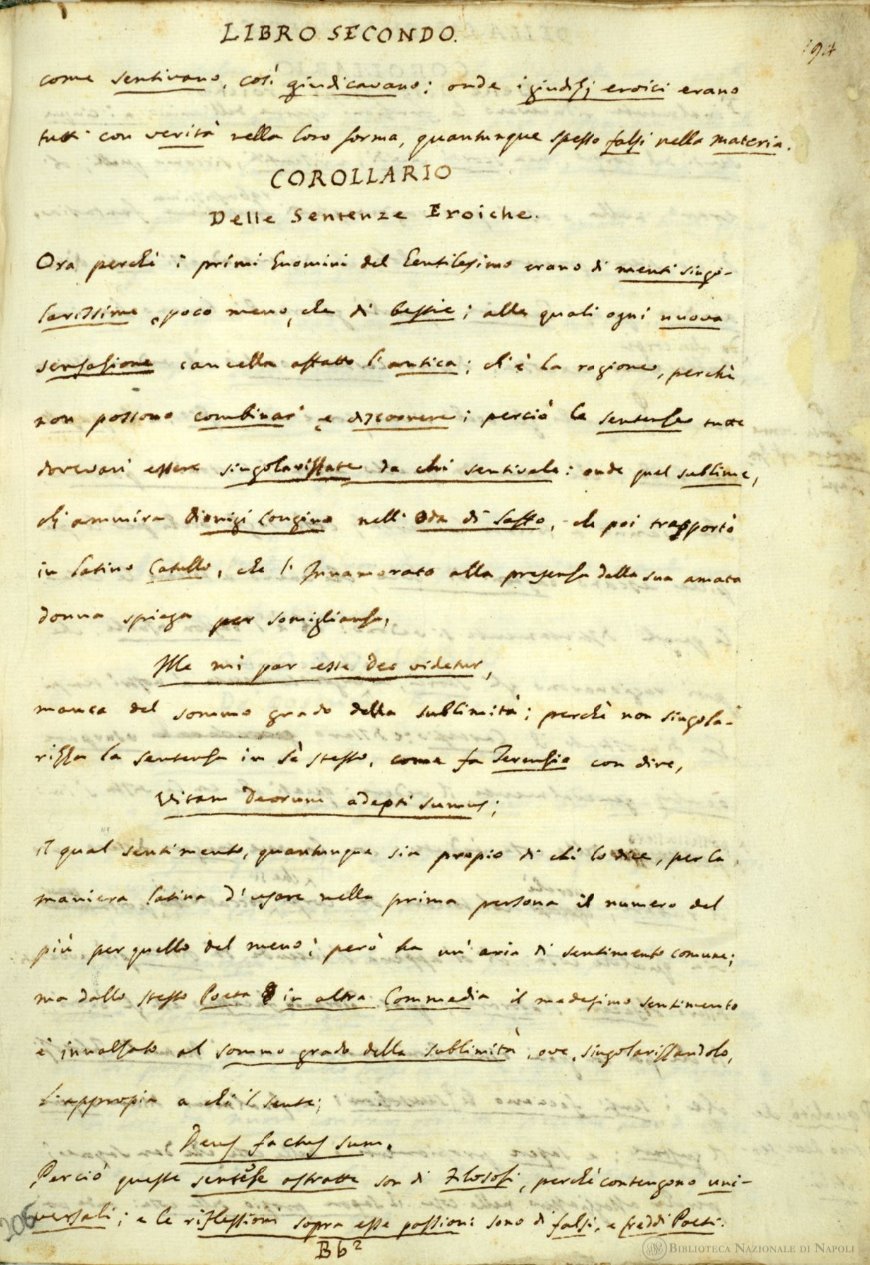 LIBRO SECONDO.
194
come sentivano, così giudicavano; onde i giudizj eroici erano
tutti con verità nella loro forma, quantunque spesso falsi nella materia.
COROLLARIO
Delle Sentenze Eroiche.
Ora perchè i primi huomini del Gentilesimo erano di menti singo-
larissime, poco meno, che di bestie; alle quali ogni nuova
sensazione cancella affatto l'antica; ch'è la ragione, perchè
non possono combinar' e discorrere; perciò le sentenze tutte
dovevan' essere singolarizzate da chi sentivale: onde quel sublime,
ch'ammira Dionigi Longino nell' Oda di Saffo, che poi trasportò
in latino Catullo, che l'Innamorato alla presenza della sua amata
donna spiega per somiglianza,
Ille mi par esse Deo videtur,
manca del sommo grado della sublimità; perchè non singola-
rizza la sentenza in sè stesso, come fa Terenzio con dire,
Vitam Deorum adepti sumus;
il qual sentimento, quantunque sia propio di chi lo dice, per la
maniera latina d'usare nella prima persona il numero del
più per quello del meno; però ha un'aria di sentimento comune;
ma dallo stesso Poeta in altra Commedia il medesimo sentimento
è innalzato al sommo grado della sublimità, ove, singolarizzandolo,
l'appropia a chi 'l sente;
Deus factus sum.
Perciò queste sentenze astratte son di Filosofi, perchè contengono uni-
versali; e le riflessioni sopra esse passioni sono di falsi, e freddi Poeti.
Bb²
BIBLIOTECA NAZIONALE DI NAPOLI